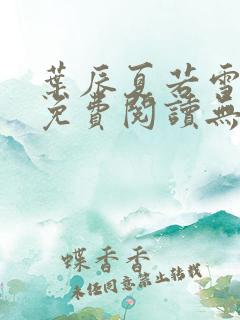 葉辰夏若雪
免費閱讀無
蝶香香
未任同意禁止转载